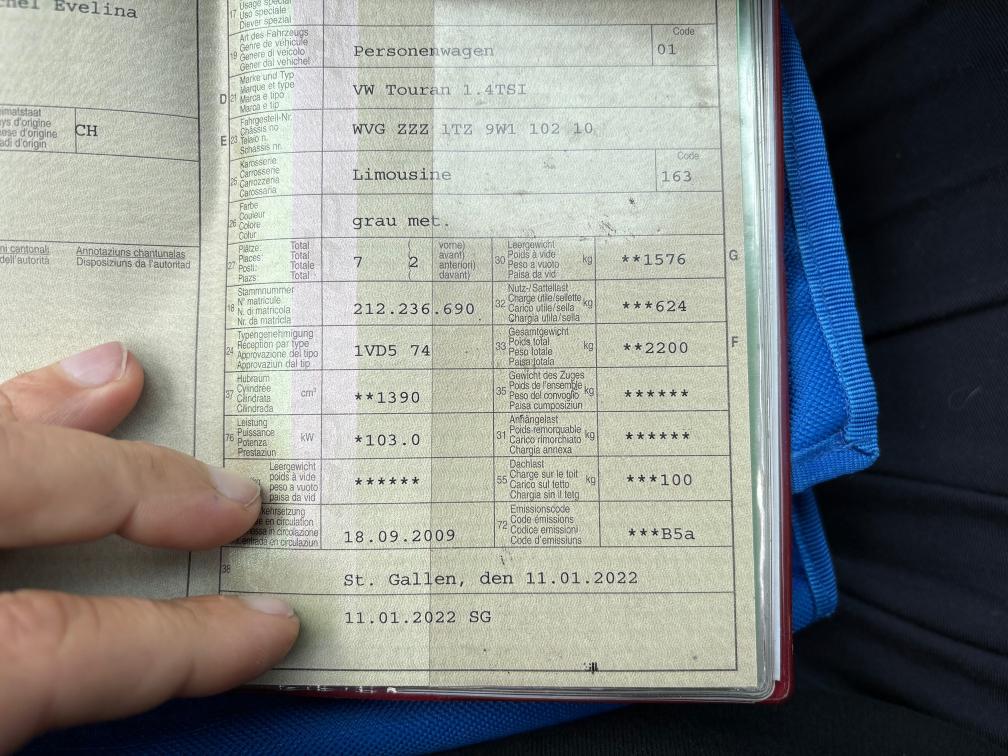 Evelina
imatstaat
ys d'origine
ese d'origine
adi d'origin
CH
ni cantonali
dell'autorità
Annotaziuns chantunalas
Disposiziuns da l'autoritad
17 Usage spécial
Uso speciale
Diever spezial
19 Art des Fahrzeugs
Genre de véhicule
Genere di veicolo
Gener dal vehichel
Personenwagen
Code
01
D 21 Marke und Typ
Marque et type
Marca e tipo
Marca e tip
VW Touran 1.4TSI
E 23 Fahrgestell-Nr.
Châssis no
Telaio n.
Schassis nr.
WVG ZZZ 1TZ 9W1 102 10
25 Karosserie
Carrosserie
Carrozzeria
Carossaria
Limousine
Code
163
26 Farbe
Couleur
Colore
Colur
grau met.
27 Plätze: Total
Places: Total
Posti: Totale
Plazs: Total
7 ( 2 vorne)
avant)
anteriori)
davant)
30 Leergewicht
Poids à vide
Peso a vuoto
Paisa da vid
kg
**1576
G
18 Stammnummer
N° matricule
N. di matricola
Nr. da matricla
212.236.690
32 Nutz-/Sattellast
Charge utile/sellette
Carico utile/sella
Chargia utila/sella
kg
***624
24 Typengenehmigung
Réception par type
Approvazione del tipo
Approvaziun dal tip
1VD5 74
33 Gesamtgewicht
Poids total
Peso totale
Paisa totala
kg
**2200
F
37 Hubraum
Cylindrée
Cilindrata
Cilindrada
cm³
**1390
35 Gewicht des Zuges
Poids de l'ensemble
Peso del convoglio
Paisa cumposiziun
kg
******
76 Leistung
Puissance
Potenza
Prestaziun
kW
*103.0
31 Anhängelast
Poids remorquable
Carico rimorchiato
Chargia annexa
kg
******
Leergewicht
poids à vide
peso a vuoto
paisa da vid
******
55 Dachlast
Charge sur le toit
Carico sul tetto
Chargia sin il tetg
kg
***100
kehrsetzung
en circulation
ssa in circolazione
entrada en circulaziun
18.09.2009
72 Emissionscode
Code émissions
Codice emissioni
Code d'emissiuns
***B5a
38
St. Gallen, den 11.01.2022
11.01.2022 SG